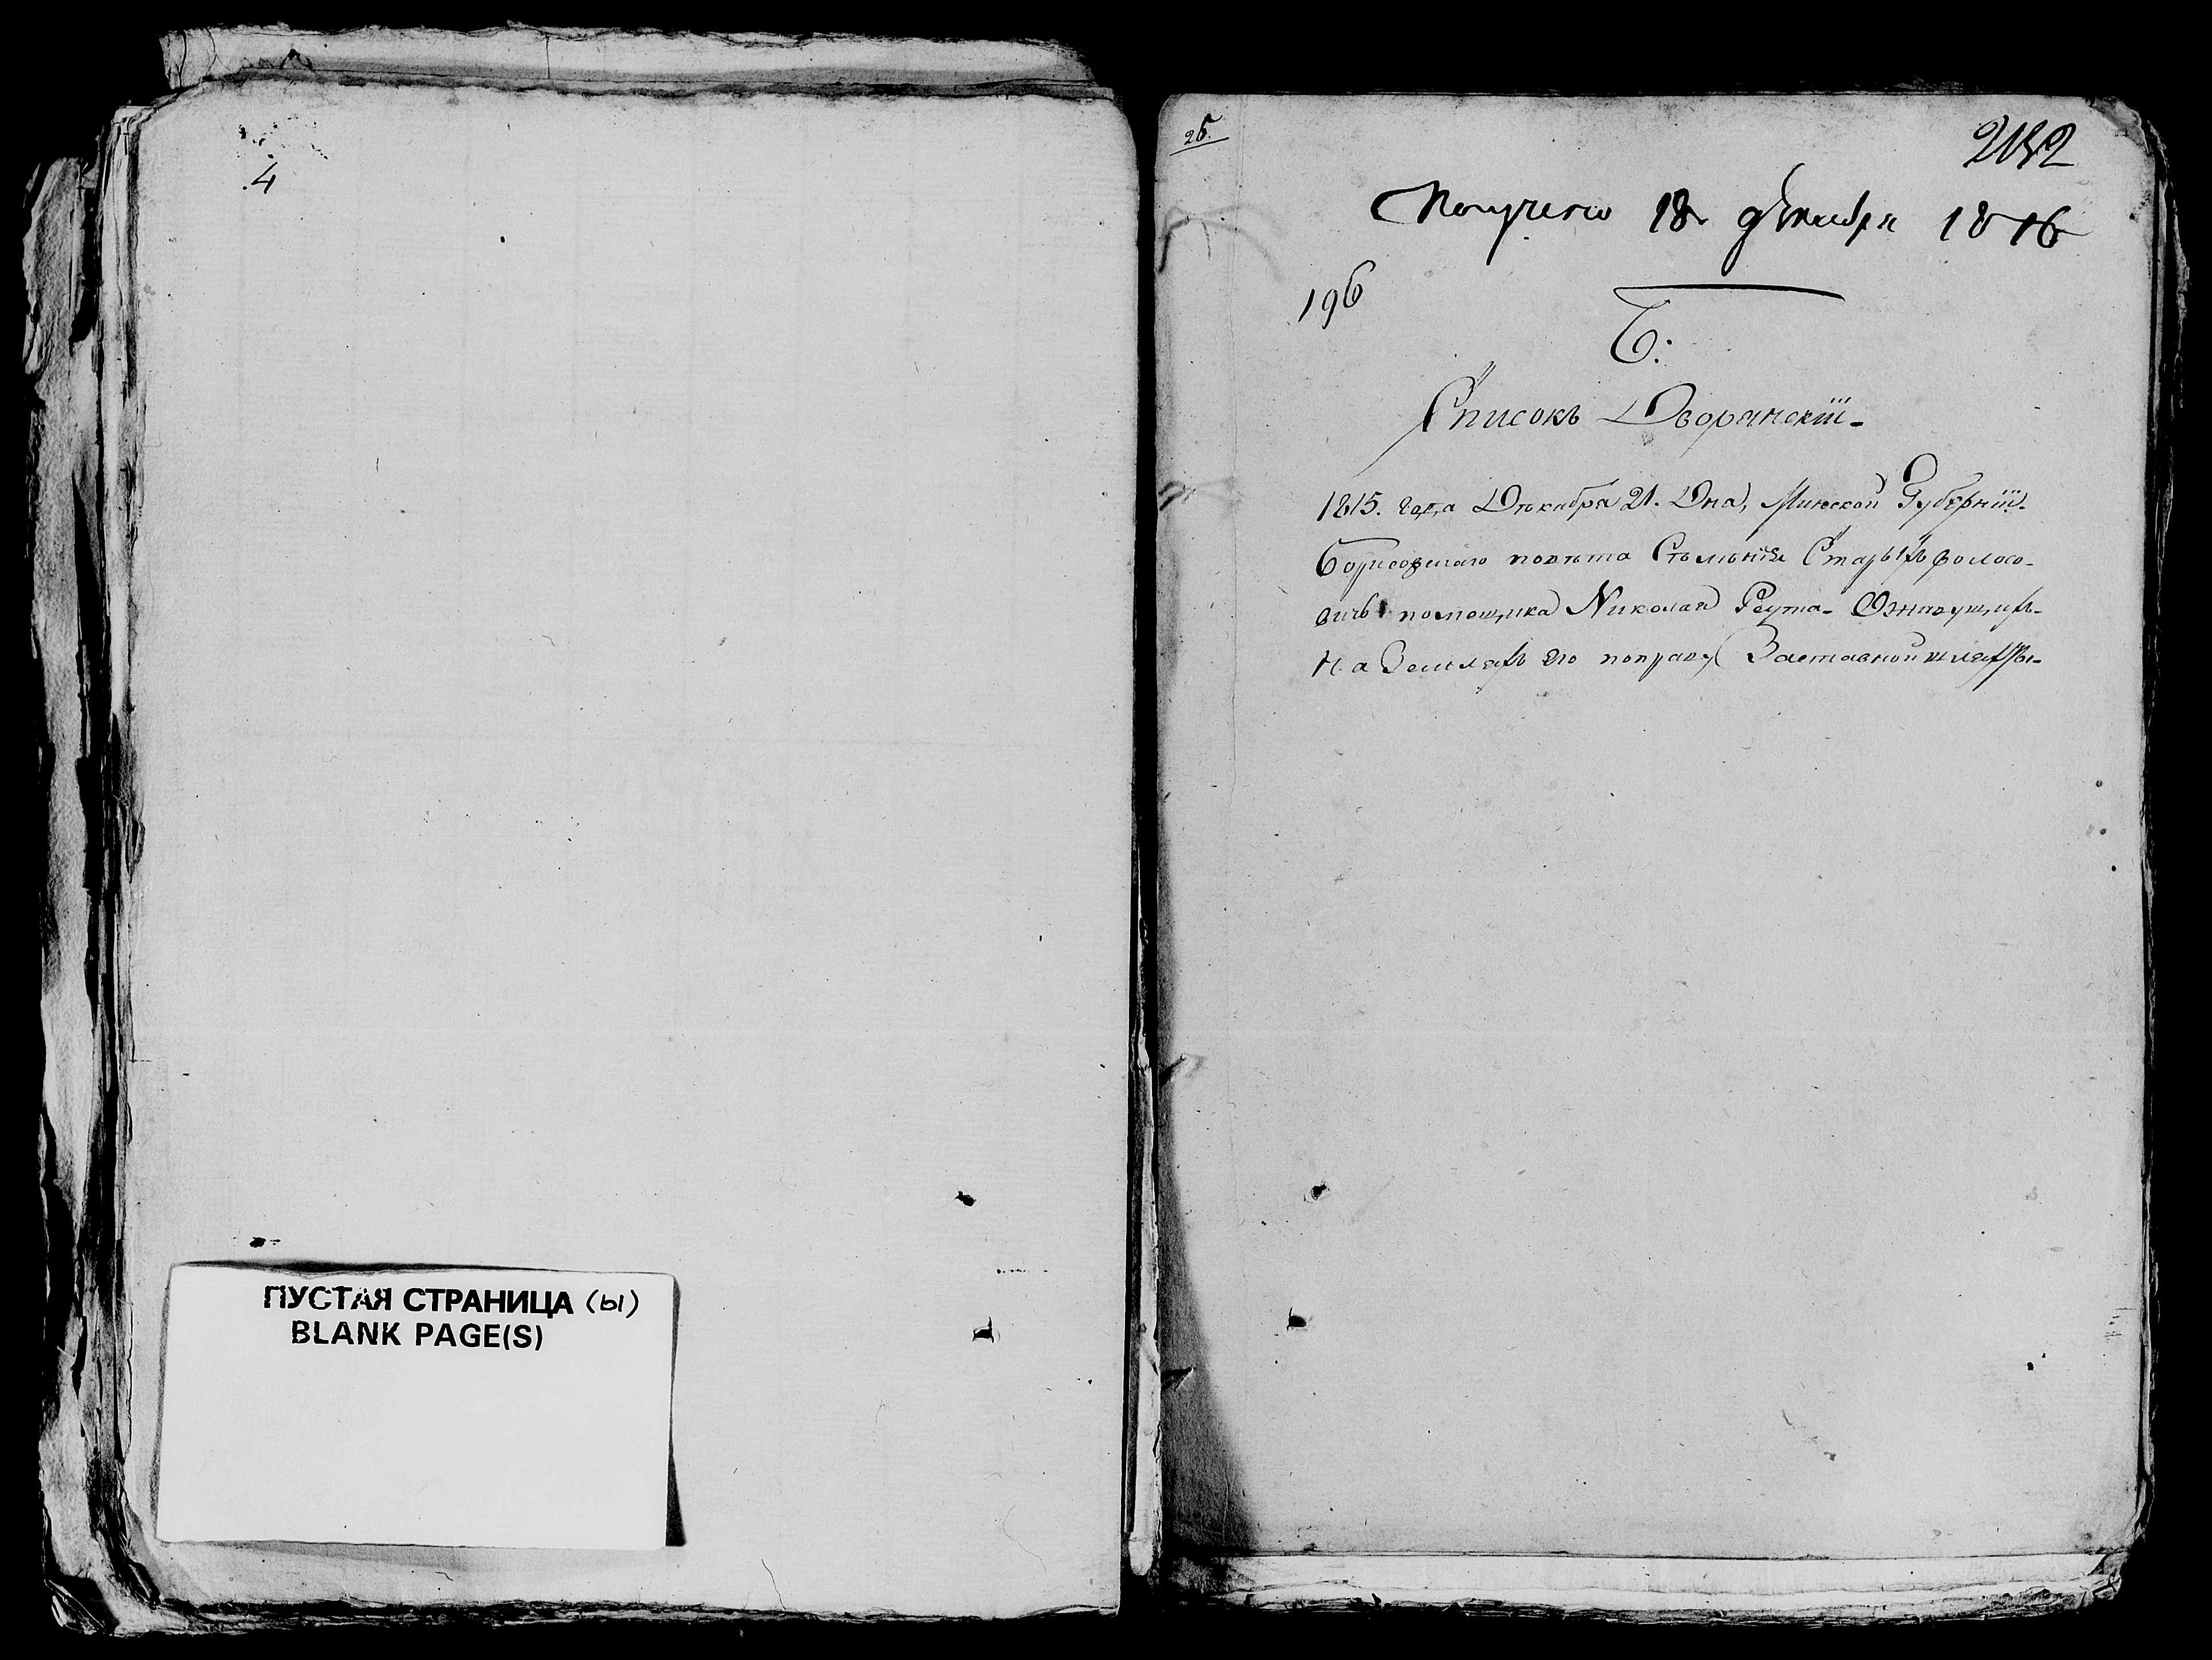 4
ПУСТАЯ СТРАНИЦА (ы)
BLANK PAGE(S)
2182
Получено 18 декабря 1816
196
Б:
Списокъ Дворянскій
1815. года Декабря 21. Дня, Минской Губерніи
Борисовскаго повѣта Старыхъ Волосо-
вичь помещика Николая Реута
На Земляхъ Его поправу Заставной